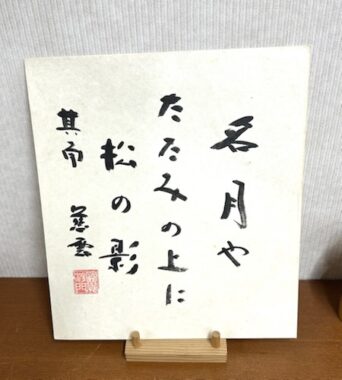 名月や
たたみの上に
松の影
其角 慈雲